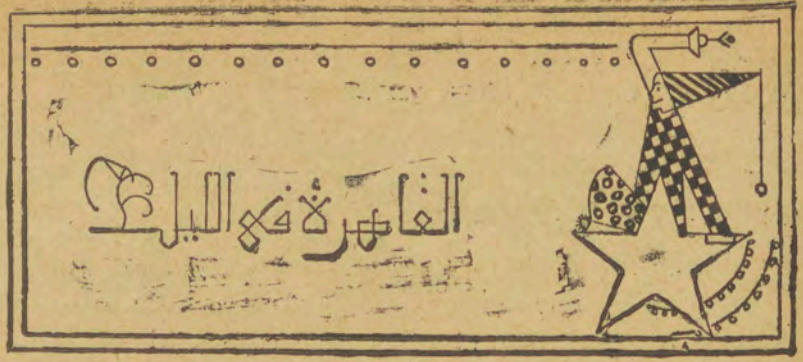 القاهرة في الليل